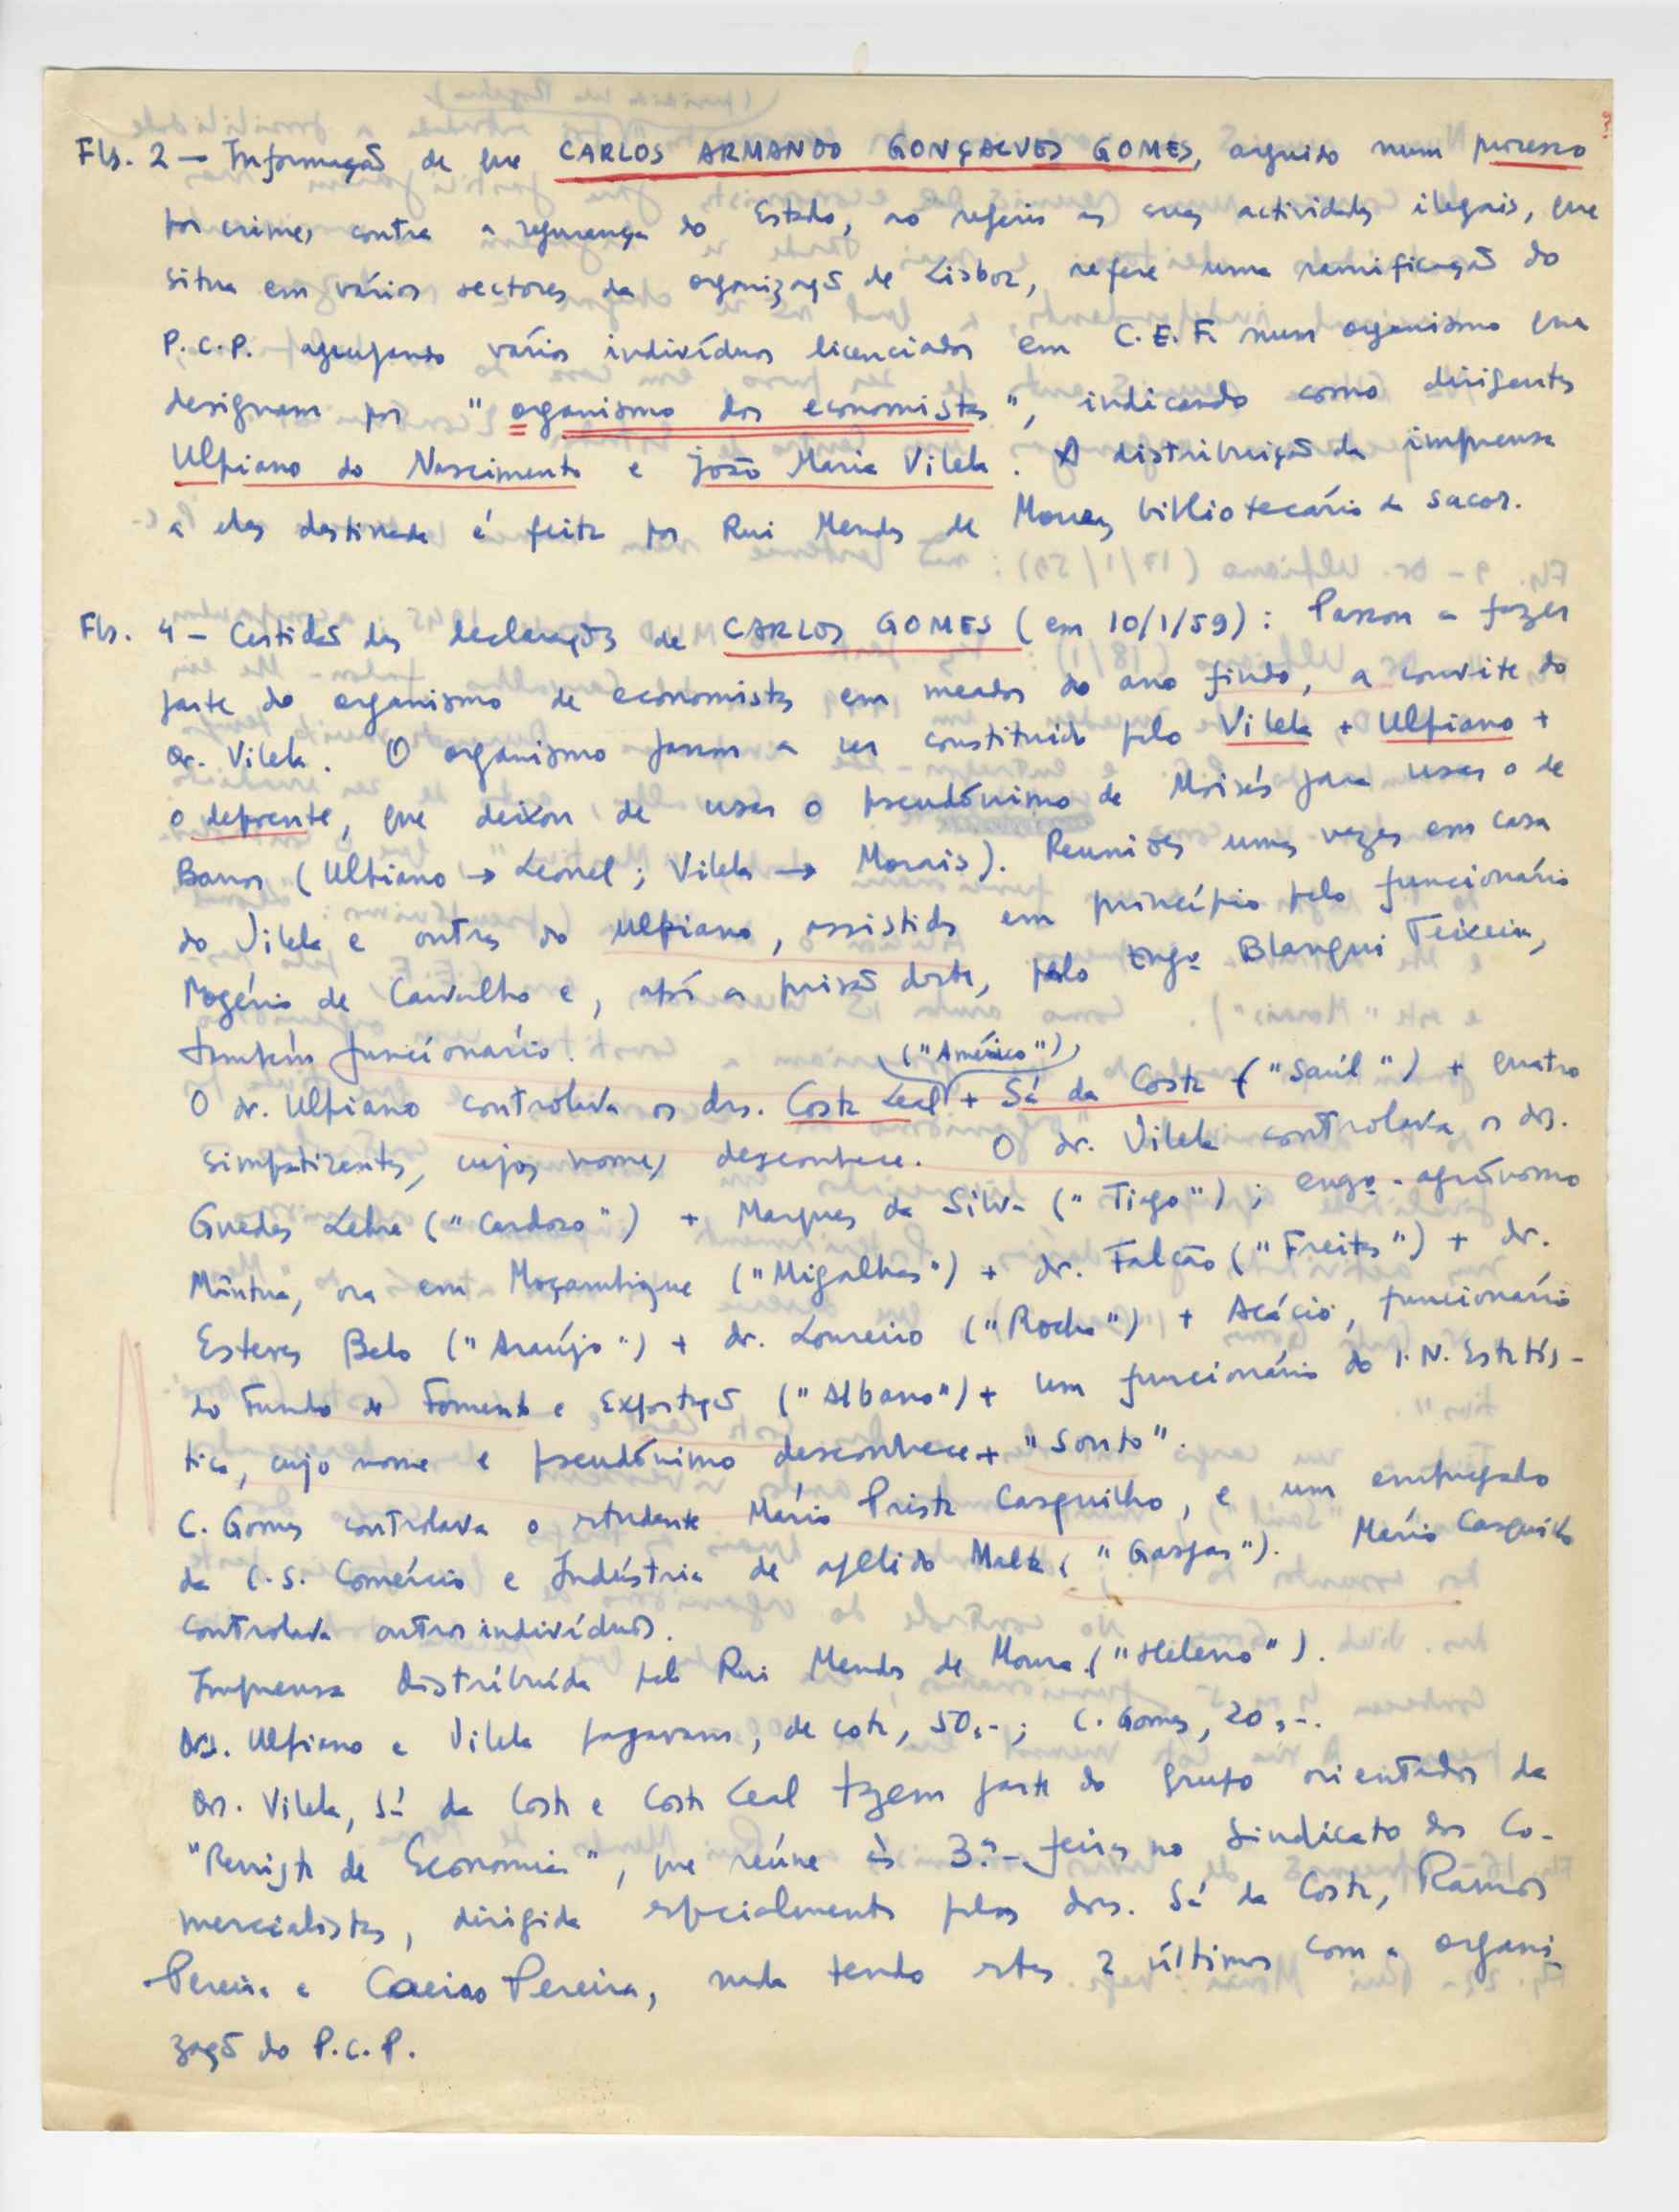 Fls. 2 — Informação de que CARLOS ARMANDO GONÇALVES GOMES, arguido num processo
por crimes contra a segurança do Estado, ao referir as suas actividades ilegais, que
situa em vários sectores da organização de Lisboa, refere uma ramificação do
P.C.P. agrupando vários indivíduos licenciados em C.E.F. num organismo que
designam por "organismo dos economistas", indicando como dirigentes
Ulpiano do Nascimento e João Maria Vilela. A distribuição da imprensa
a eles destinada é feita por Rui Mendes de Moura, bibliotecário da Sacor.
Fls. 4 — Certidão das declarações de CARLOS GOMES (em 10/1/59): Passou a fazer
parte do organismo de economistas em meados do ano findo, a convite do
Dr. Vilela. O organismo passou a ser constituído pelo Vilela + Ulpiano +
o depoente, que deixou de usar o pseudónimo de Moisés para usar o de
Barros (Ulpiano → Leonel; Vilela → Morais). Reuniões umas vezes em casa
do Vilela e outras do Ulpiano, assistidas em princípio pelo funcionário
Rogério de Carvalho e, após a prisão deste, pelo Engº Blanqui Teixeira,
também funcionário.
("Américo")
O dr. Ulpiano controlava os drs. Costa Leal + Sá da Costa ("Saúl") + quatro
simpatizantes, cujos nomes desconhece. O dr. Vilela controlava os drs.
Guedes Lebre ("Cardoso") + Marques da Silva ("Tiago"); engº-agrónomo
Mântua, ora em Moçambique ("Migalhas") + dr. Falcão ("Freitas") + dr.
Esteves Belo ("Araújo") + dr. Loureiro ("Rocha") + Acácio, funcionário
do Fundo de Fomento e Exportação ("Albano") + um funcionário do I.N. Estatís-
tica, cujo nome e pseudónimo desconhece + "Souto".
C. Gomes controlava o estudante Mário Prista Casquilho, e um empregado
da C.S. Comércio e Indústria de apelido Malta ("Gaspar"). Mário Casquilho
controlava outros indivíduos.
Imprensa distribuída pelo Rui Mendes de Moura ("Heleno").
Drs. Ulpiano e Vilela pagavam, de cota, 50,-; C. Gomes, 20,-.
Drs. Vilela, Sá da Costa e Costa Leal fazem parte do grupo orientador da
"Revista de Economia", que reúne às 3.ª-feiras no Sindicato dos Co-
mercialistas, dirigida especialmente pelos drs. Sá da Costa, Ramos
Pereira e Caeiro Pereira, nada tendo estes 2 últimos com a organi-
zação do P.C.P.